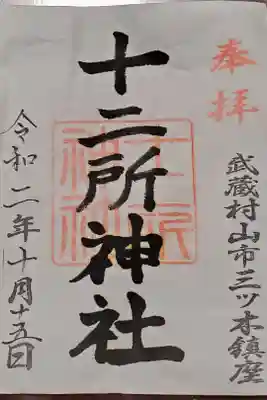 奉拝
武蔵村山市三ツ木鎮座
十二所神社
令和二年十月十五日